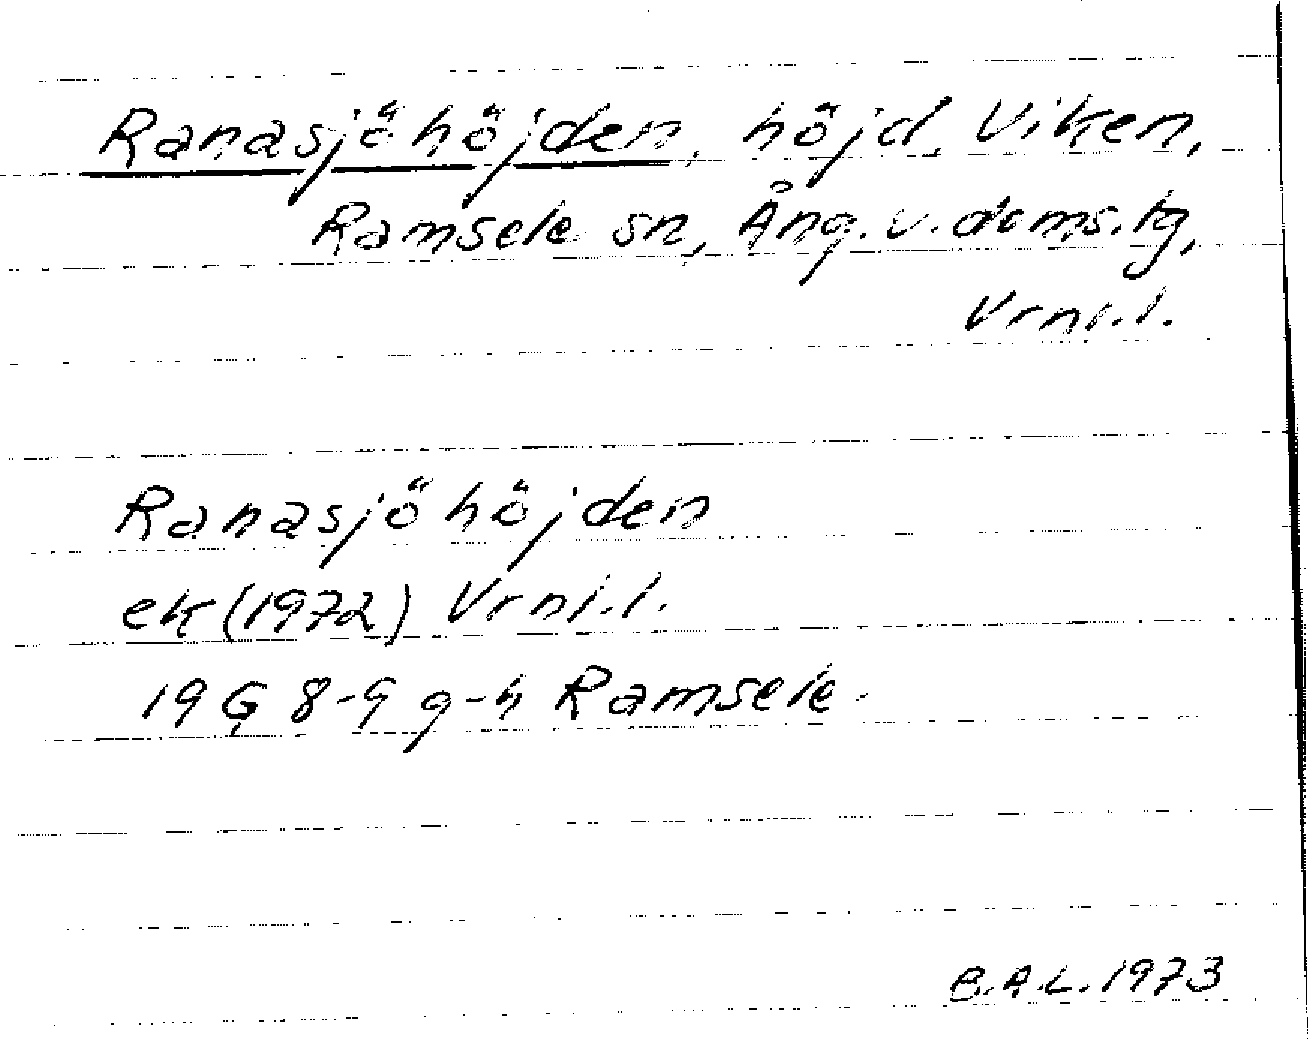 Ranasjöhöjden, höjd, Viken,
Ramsele sn, Ång. v. doms.lg,
Vrnl.l.
Ranasjöhöjden
ek (1972) Vrnl.l.
19 G 8-9 g-h Ramsele.
B.A.L. 1973